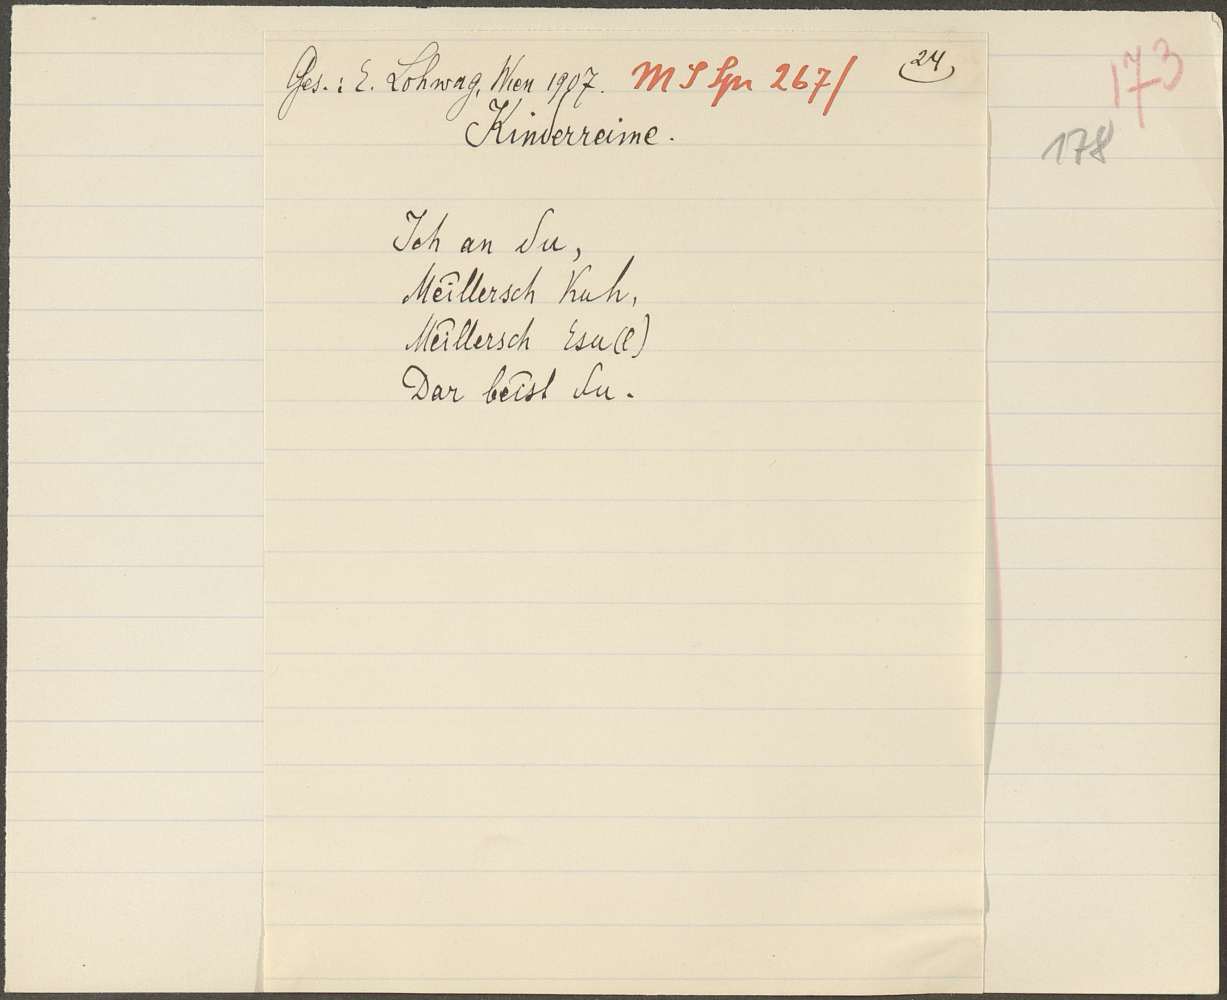 Ges.: E. Lohwag, Wien 1907. M S Spr 267/ 24
173
178
Kinderreime.
Ich an du,
Meillersch Kuh,
Meillersch Esu(l)
Dar beist du.